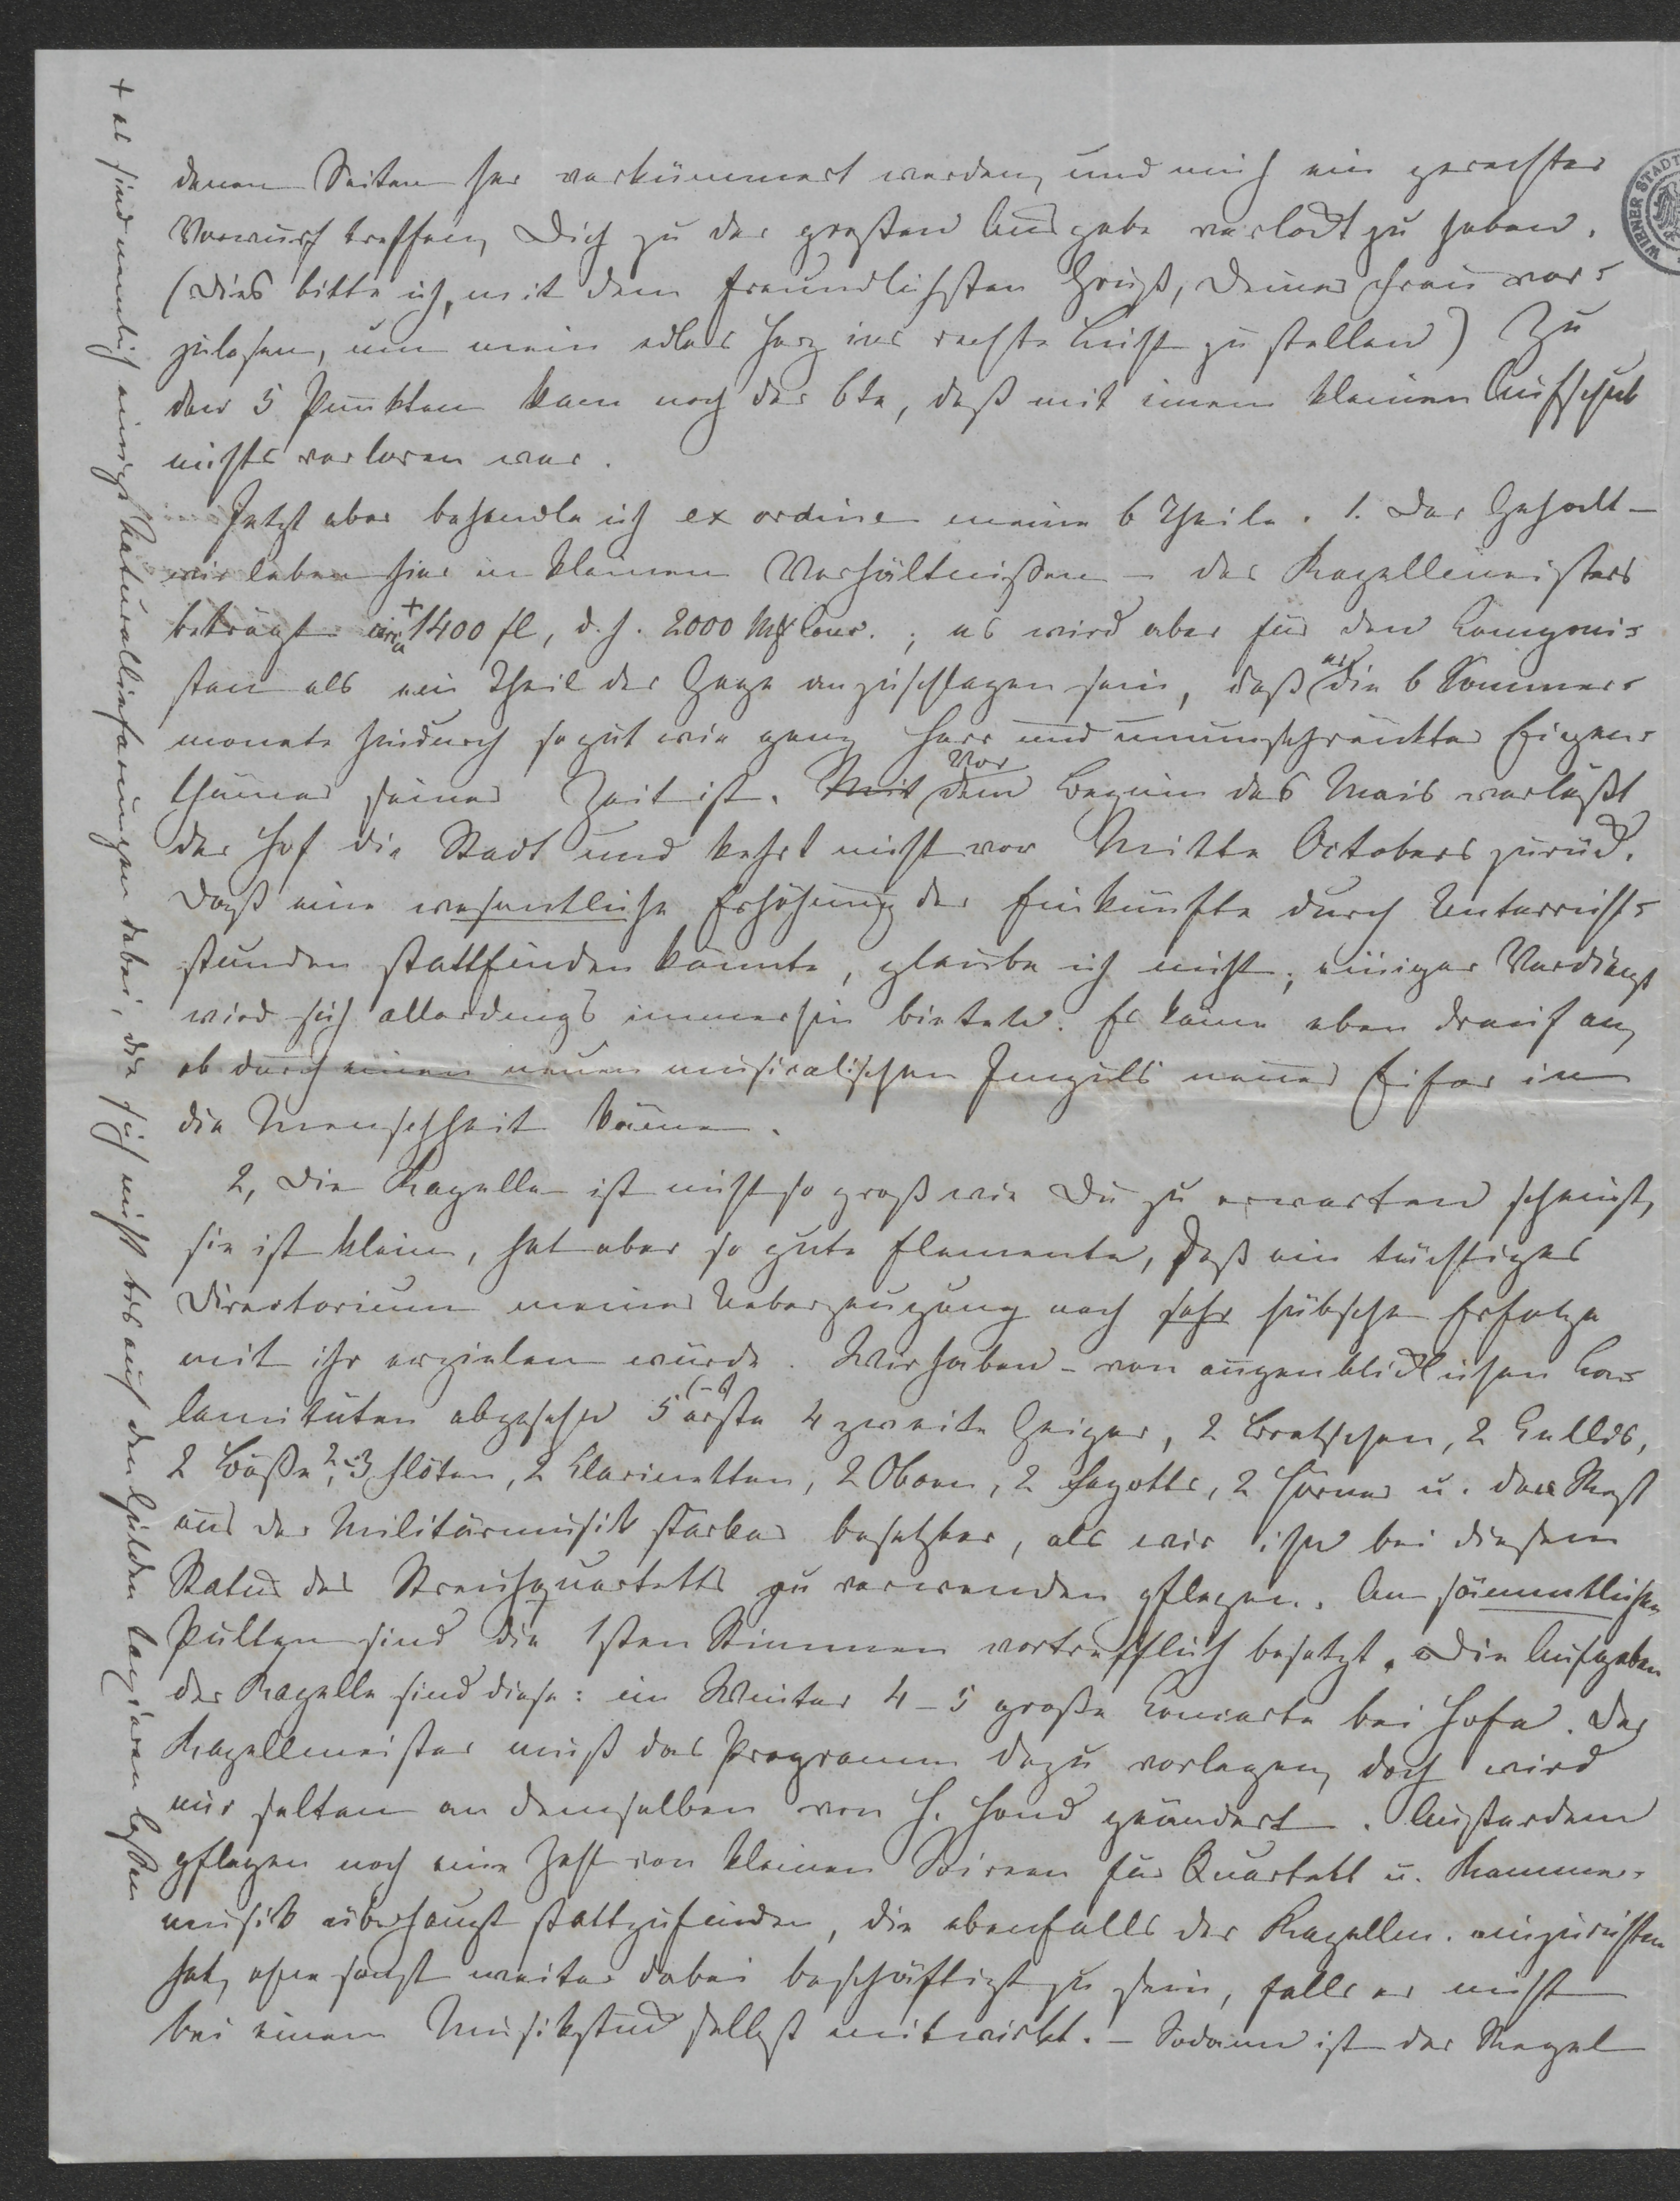 denen Seiten her verkümmert werden, und mich ein gerechter
Vorwurf treffen, Dich zu der großen Ausgabe verlockt zu haben.
(Dies bitte ich, mit dem freundlichsten Gruß, Deiner Frau vor-
zulesen, um mein edles Herz ins rechte Licht zu stellen) Zu
den 5 Punkten kam noch der 6te, daß mit einem kleinen Aufschub
nichts verloren war.
Jetzt aber behandle ich ex ordine meine 6 Theile. 1. Der Gehalt –
wir leben hier in kleinen Verhältnißen – des Kapellmeisters
beträgt circa + 1400 fl, d. h. 2000 Mk Cour.; es wird aber für den Componi-
sten als ein Theil der Gage anzuschlagen sein, daß er die 6 Sommer-
monate hindurch so gut wie ganz Herr und unumschränkter Eigen-
thümer seiner Zeit ist. Mit Vor dem Beginn des Mais verläßt
der Hof die Stadt und kehrt nicht vor Mitte Octobers zurück.
Daß eine wesentliche Erhöhung der Einkünfte durch Unterrichts-
stunden stattfinden könnte, glaube ich nicht; einiger Verdienst
wird sich allerdings immerhin bieten. Es käme eben drauf an,
ob durch einen neuen musicalischen Impuls neuer Eifer in
die Menschheit käme.
2, Die Kapelle ist nicht so groß wie Du zu erwarten scheinst,
sie ist klein, hat aber so gute Elemente, daß ein tüchtiges
Directorium meiner Ueberzeugung nach sehr hübsche Erfolge
mit ihr erzielen würde. Wir haben – von augenblicklichen Ca-
lamitäten abgesehen 5 (–6) erste 4 zweite Geiger, 2 Bratschen, 2 Cellis,
2 Bäße, 2–3 Flöten, 2 Clarinetten, 2 Oboen, 2 Fagotts, 2 Hörner u. den Rest
aus der Militärmusik stärker besetzbar, als wir ihn bei diesem
Status des Streichquartetts zu verwenden pflegen. An sämmtlichen
Pulten sind die 1sten Stimmen vortrefflich besetzt. Die Aufgaben
der Kapelle sind diese: im Winter 4–5 große Concerte bei Hofe. Der
Kapellmeister muß das Programm dazu vorlegen, doch wird
nur selten an demselben von h. Hand geändert. Außerdem
pflegen noch eine Zahl von kleinen Soireen für Quartett u. Kammer-
musik überhaupt stattzufinden, die ebenfalls der Kapellm. einzurichten
hat, ohne sonst weiter dabei beschäftigt zu sein, falls er nicht
bei einem Musikstück selbst mitwirkt. – Sodann ist der Regel
+ es sind nemlich einige Naturallieferungen dabei, die sich nicht bis auf den Gulden taxiren laßen
WIENER STADT